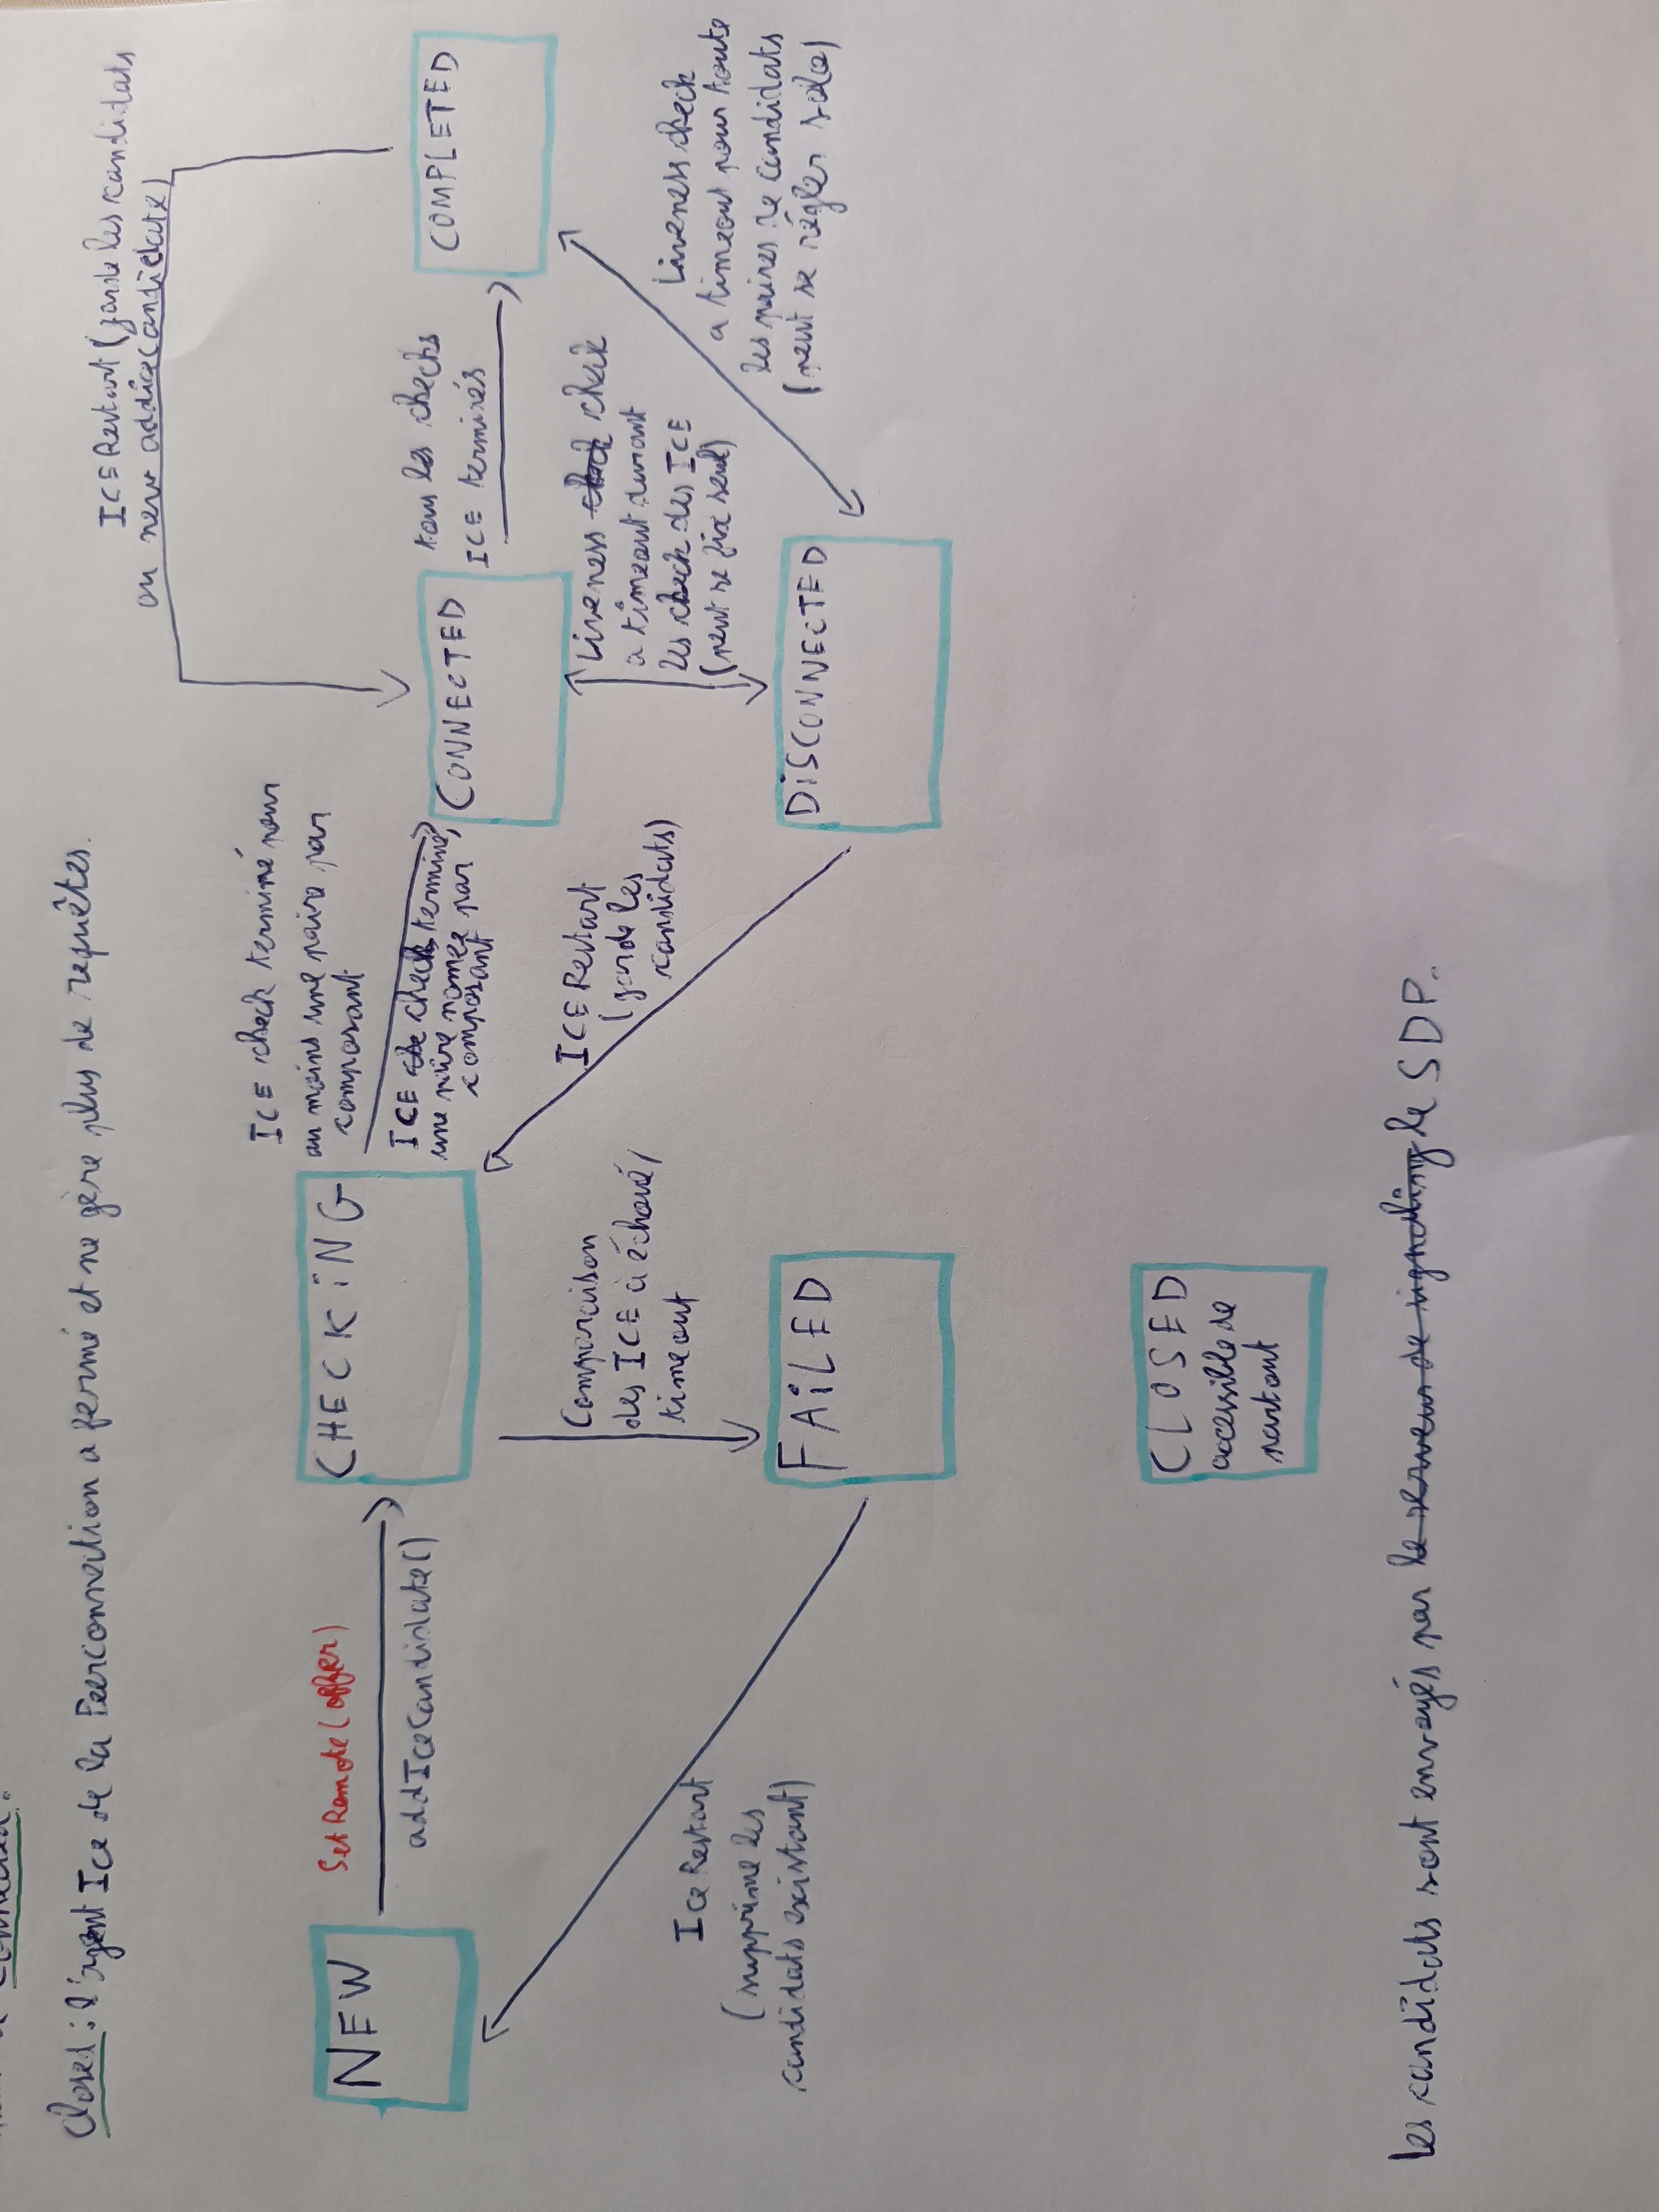 Connected.
Closed : l'agent Ice de la Peerconnection a fermé et ne gère plus de requêtes.
ICE Restart (garde les candidats
ou new addiceCandidate)
NEW
SetRemote(offer)
addIceCandidate()
CHECKiNG
ICE check terminé pour
au moins une paire par
composant
ICE checks terminé,
une paire nomée par
composant
CONNECTED
tous les checks
ICE terminés
COMPLETED
Comparaison
des ICE à échoué/
timeout
ICE Restart
(garde les
candidats)
Liveness check
a timeout durant
les check des ICE
(peut se fix seul)
Liveness check
a timeout pour toute
les paires de candidats
(peut se régler solo)
Ice Restart
(supprime les
candidats existant)
FAiLED
DiSCONNECTED
CLOSED
accessible de
partout
les candidats sont envoyés par le serveur de signaling le SDP.